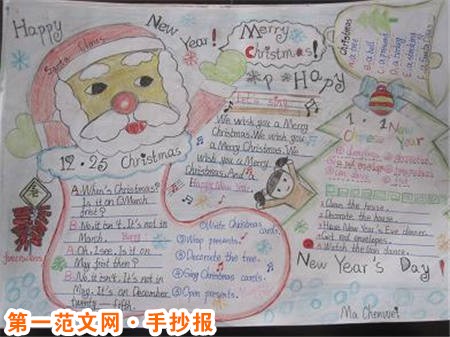 Happy New Year!
Merry Christmas!
Santa Claus
Happy
Christmas
A. a tree
B. a bell
C. a present
Let's sing
We wish you a Merry
Christmas. We wish
you a Merry
Christmas. We
wish you a Merry
Christmas. And a
Happy New Year.
12·25 Christmas
A: When's Christmas?
Is it on March
first?
B: No, it isn't. It's not in
March.
A: Oh, I see. Is it on
May first then?
B: No, it isn't. It's not in
May. It is on December
twenty-fifth.
① Write Christmas cards.
② Wrap presents.
③ Decorate the tree.
④ Sing Christmas cards.
⑤ Open presents.
1·1 New
Chinese Year
Clean the house.
Decorate the house.
Have New Year's Eve dinner.
Get red envelopes.
Watch the lion dance.
New Year's Day!
firecrackers
Ma Chenwei
第一范文网·手抄报